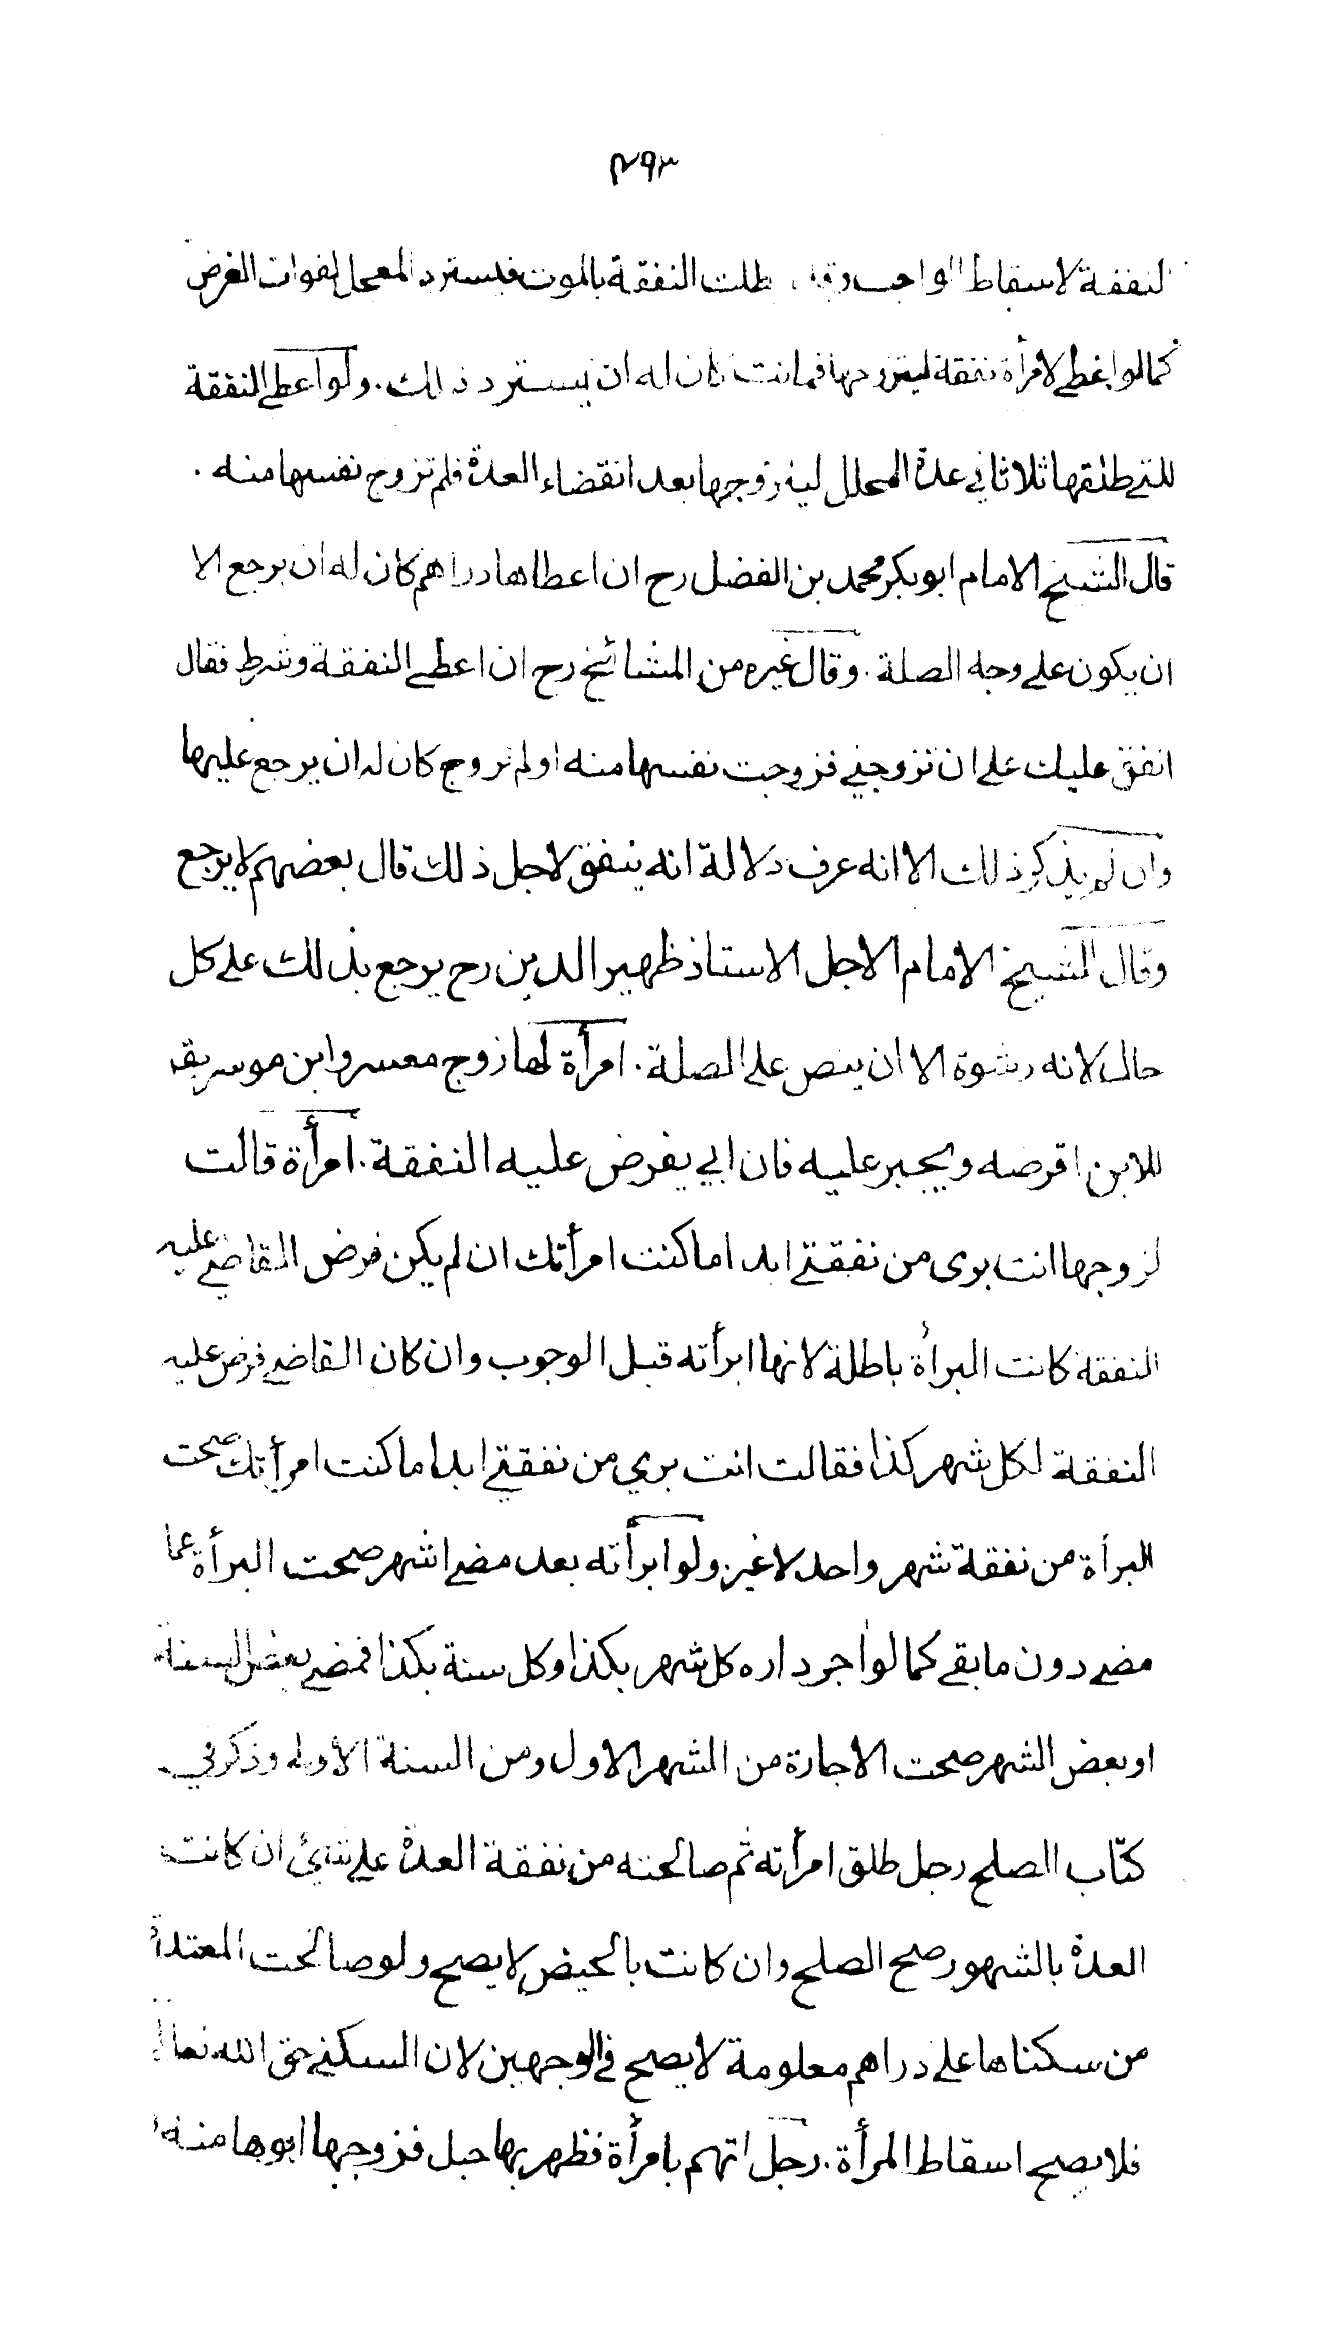 ٤٩٣
النفقة لاسقاط الواجب وقد بطلت النفقة بالموت فيسترد المعجل لفوات الغرض
كما لو اعطے لامرأة نفقة ليتزوجها فماتت كان له ان يسترد ذلك. ولو اعطے النفقة
للتے طلقها ثلاثا في عدة المحلل ليتزوجها بعد انقضاء العدة فلم تزوج نفسها منه.
قال الشيخ الامام ابو بكر محمد بن الفضل رح ان اعطاها دراهم كان له ان يرجع الا
ان يكون علے وجه الصلة. وقال غيره من المشائخ رح ان اعطے النفقة وشرط فقال
انفق عليك علے ان تزوجيني فزوجت نفسها منه او لم تزوج كان له ان يرجع عليها
وان لم يذكر ذلك الا انه عرف دلالة انه ينفق لاجل ذلك قال بعضهم لا يرجع
وقال الشيخ الامام الاجل الاستاذ ظهير الدين رح يرجع بذلك علے كل
حال لانه رشوة الا ان ينص علے الصلة. امرأة لها زوج معسر وابن موسر يقـ
للابن اقرضه ويجبر عليه فان ابي يفرض عليه النفقة. امرأة قالت
لزوجها انت بری من نفقتے ابدا ما كنت امرأتك ان لم يكن فرض القاضے عليه
النفقة كانت البرأة باطلة لانها ابرأته قبل الوجوب وان كان القاضے فرض عليه
النفقة لكل شهر كذا فقالت انت بري من نفقتے ابدا ما كنت امرأتك صحت
البرأة من نفقة شهر واحد لا غير ولو ابرأته بعد مضے اشهر صحت البرأة عما
مضے دون ما بقے كما لو اجر داره كل شهر بكذا وكل سنة بكذا فمضے بعض السنة
او بعض الشهر صحت الاجارة من الشهر الاول ومن السنة الأولے وذكر في
كتاب الصلح رجل طلق امرأته ثم صالحته من نفقة العدة علے شئ ان كانت
العدة بالشهور صح الصلح وان كانت بالحيض لا يصح ولو صالحت المعتدة
من سكناها علے دراهم معلومة لا يصح في الوجهين لان السكنے حق الله تعالے
فلا يصح اسقاط المرأة. رجل اتهم بامرأة فظهر بها حبل فزوجها ابوها منه